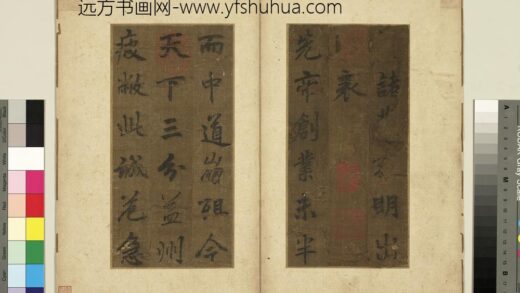 远方书画网-www.yfshuhua.com
諸明出
表
先帝創業未半
而中道崩殂今
天下三分益州
疲敝此誠危急